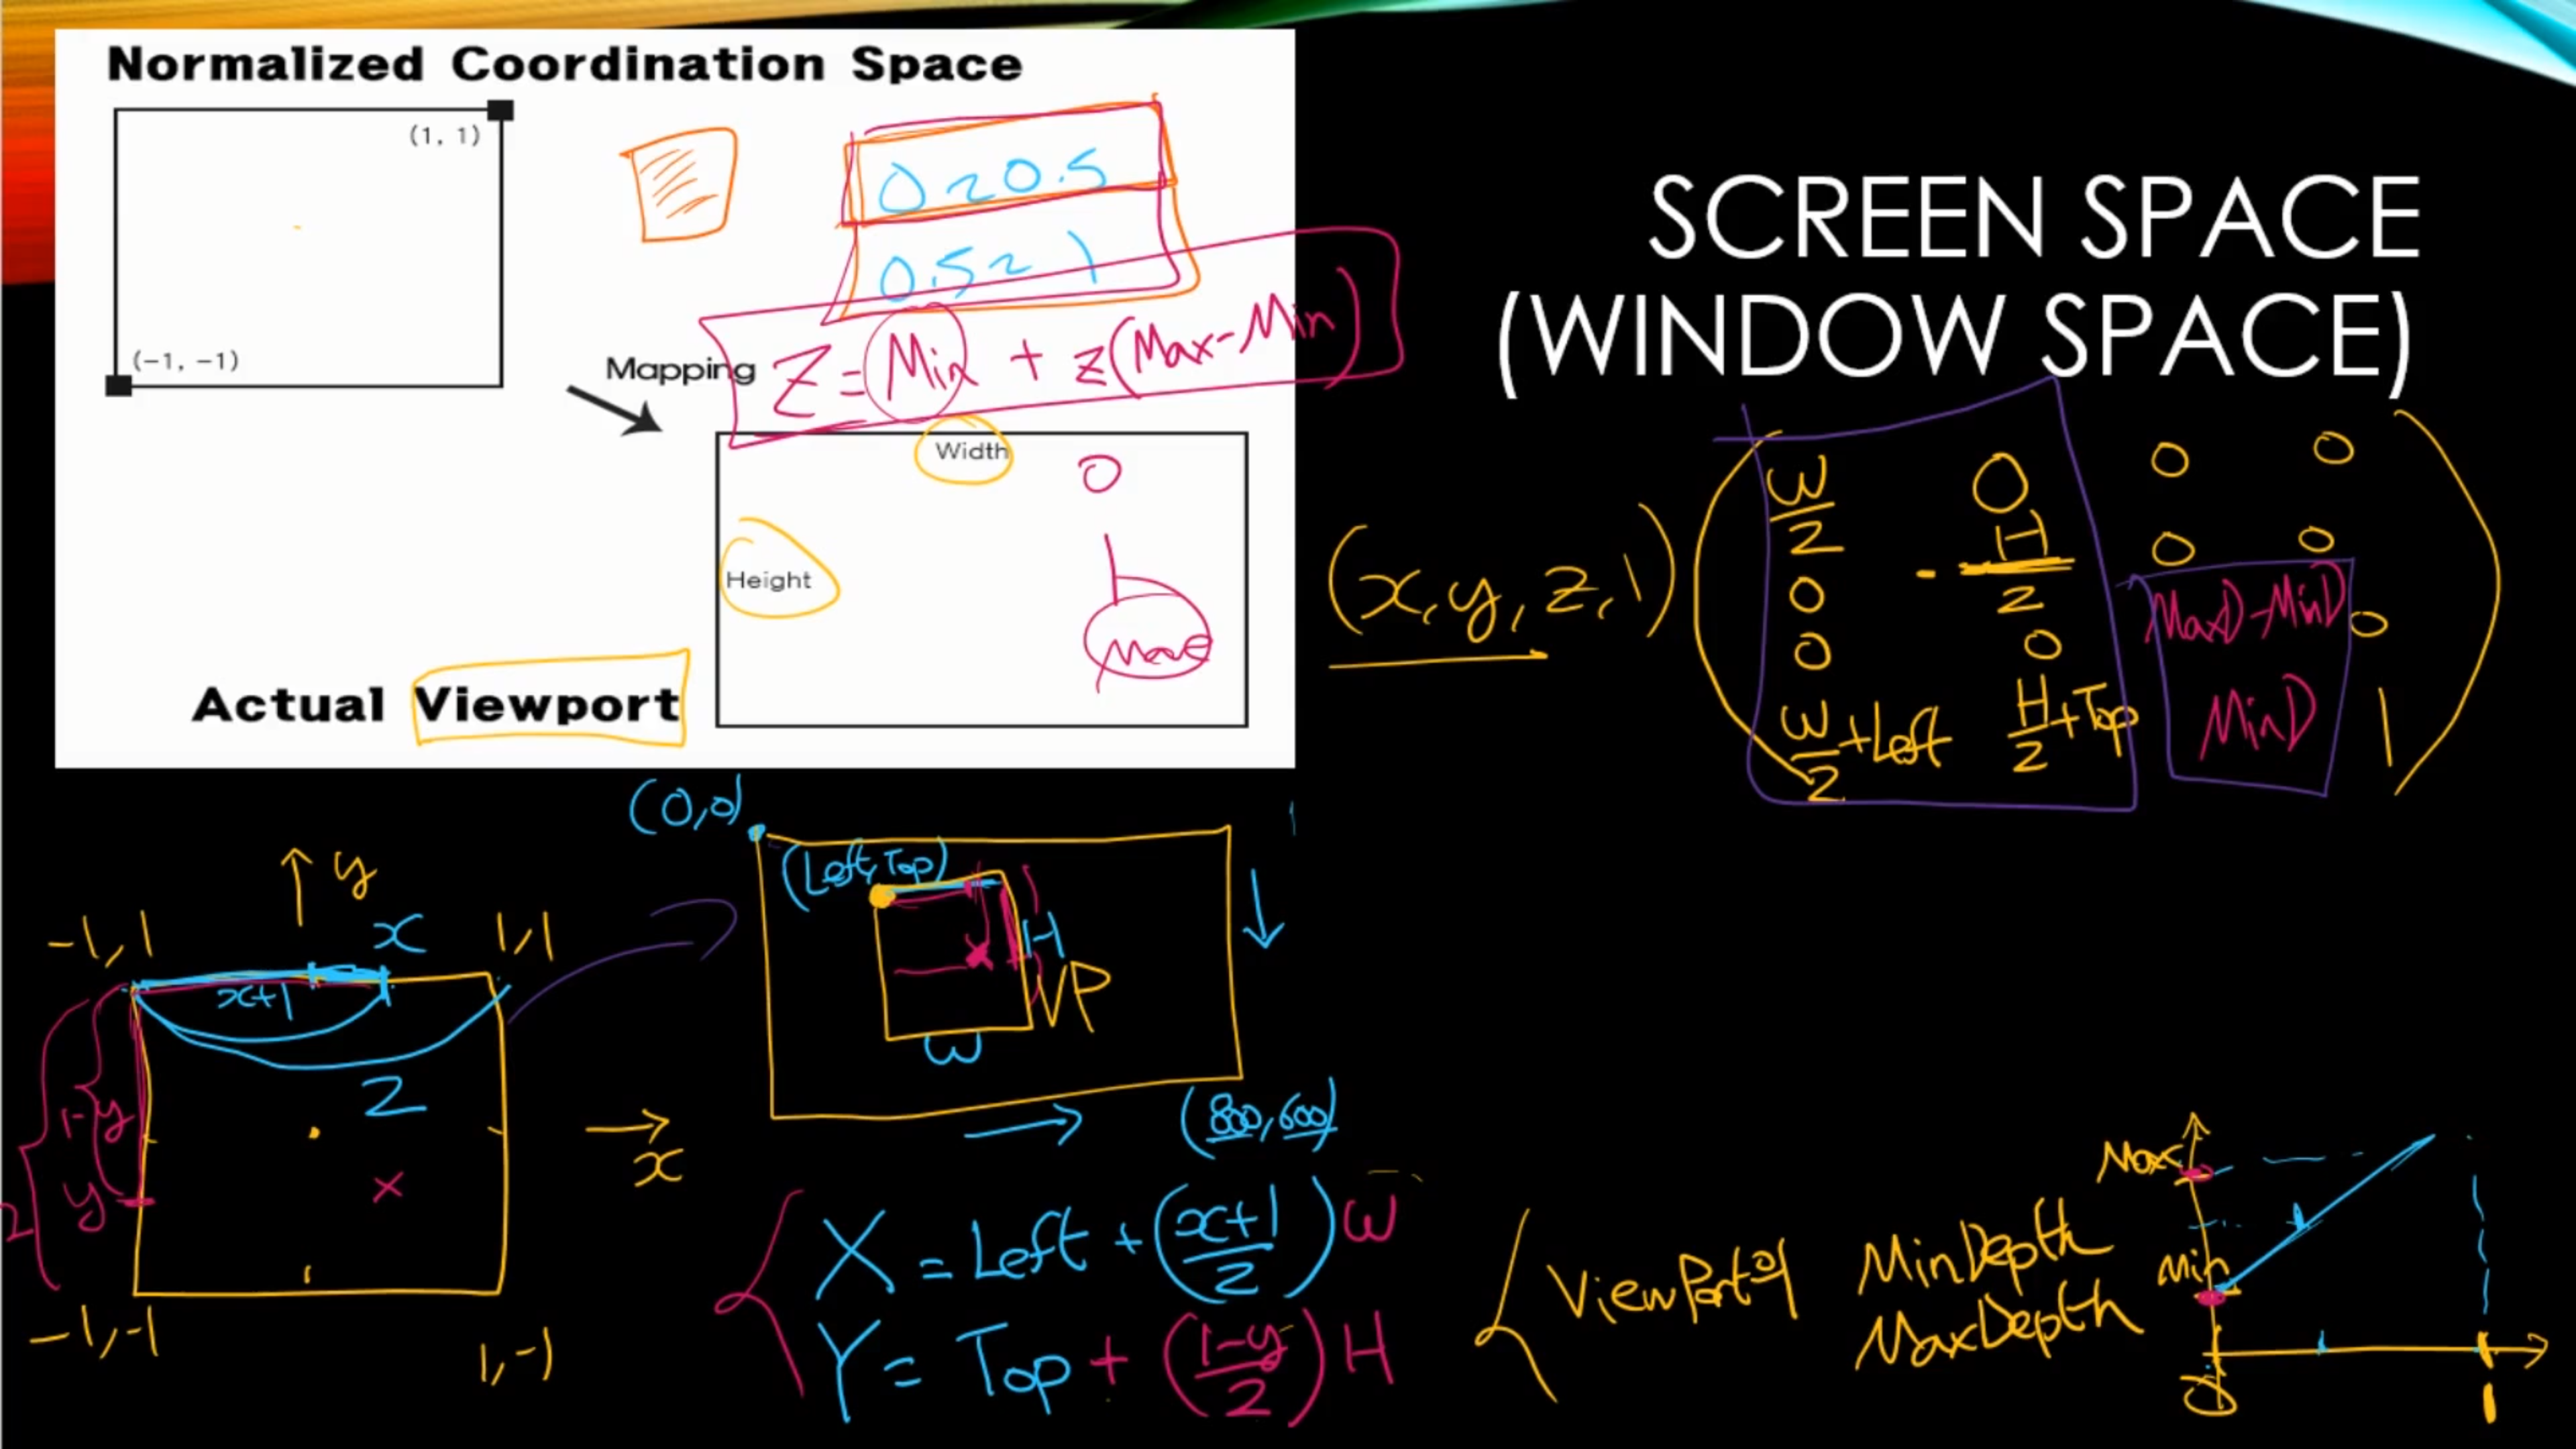 Normalized Coordination Space
(1, 1)
(-1, -1)
0 ~ 0.5
0.5 ~ 1
Mapping
Z = Min + z(Max-Min)
Width
Height
Actual Viewport
0
1
SCREEN SPACE
(WINDOW SPACE)
(x, y, z, 1)
W/2 0 0 0
0 -H/2 0 0
0 0 MaxD-MinD 0
W/2+Left H/2+Top MinD 1
(0,0)
(Left, Top)
H
VP
W
(800,600)
y
-1, 1
x
1, 1
x+1
2
1-y
y
2
x
-1, -1
1, -1
X = Left + (x+1/2) W
Y = Top + (1-y/2) H
ViewPort의
MinDepth
MaxDepth
Max
Min
0
1